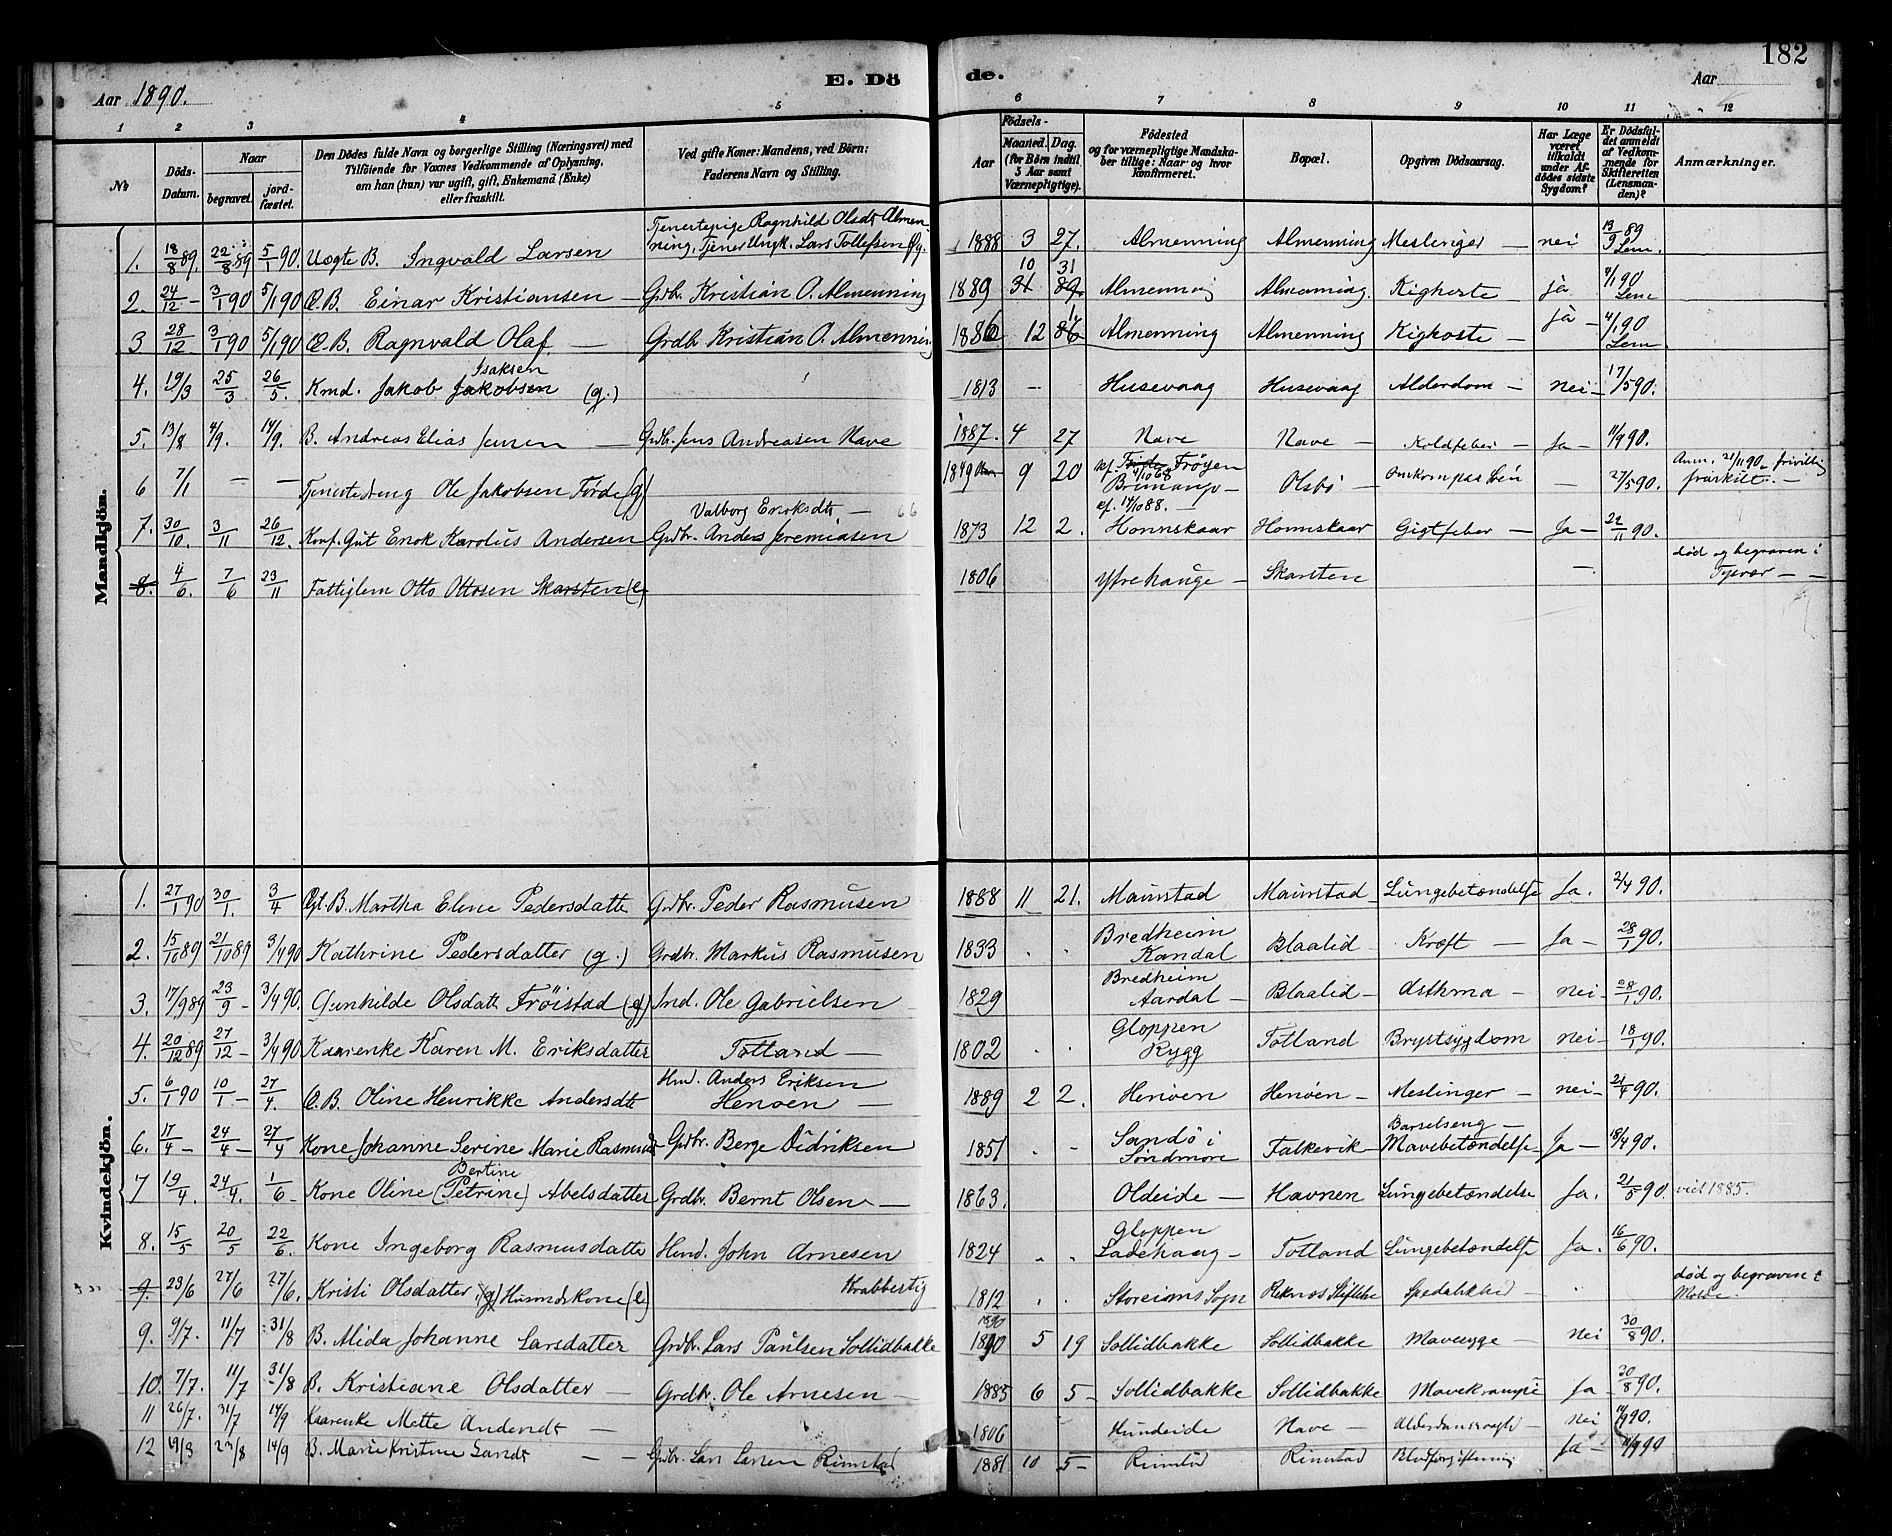 182
E. Döde.
Aar 1890.
Aar
1 2 3 4 5 6 7 8 9 10 11 12
No
Döds-Datum.
Naar
begravet.
jord-fæstet.
Den Dödes fulde Navn og borgerlige Stilling (Næringsvei) med
Tilföiende for Voxnes Vedkommende af Oplysning,
om han (hun) var ugift, gift, Enkemand (Enke)
eller fraskilt.
Ved gifte Koner: Mandens, ved Börn:
Faderens Navn og Stilling.
Födsels-
Aar
Maaned. Dag.
(for Börn indtil
5 Aar samt
Værnepligtige).
Födested
og for værnepligtige Mandska-
ber tillige: Naar og hvor
konfirmeret.
Bopæl.
Opgiven Dödsaarsag.
Har Læge
været
tilkaldt
under Af-
dödes sidste
Sygdom?
Er Dödsfal-
det anmeldt
af Vedkom-
mende for
Skifteretten
(Lensman-
den)?
Anmærkninger.
Mandkjön.
1. 18/8 89. 22/8 89 5/1 90. Uægte B. Ingvald Larsen Tjenestepige Ragnhild Olsdt Almenning, Tjener Ungk. Lars Tollefsen 1888 3 27. Almenning Almenning Meslinger — nei 13/9 89 Lem.
2. 24/12 — 3/1 90 5/1 90 Æ.B. Einar Kristiansen — Grdbr. Kristian O. Almenning 1889 10 31 Almenning Almenning. Kighoste — ja 4/1 90 Lem
3 28/12 3/1 90 5/1 90 Æ.B. Ragnvald Olaf — Grdbr Kristian O. Almenning 1886 12 Almenning Almenning Kighoste — ja — 4/1 90 Lem
4. 19/3 25/3 26/5. Kmd. Jakob Isaksen Jakobsen (g.) 1813 — Husevaag Husevaag Alderdom — nei — 17/5 90.
5. 13/8 4/9. 14/9. B. Andreas Elias Jensen — Grdbr. Jens Andreasen Nave 1887. 4 27 Nave Nave — Koldfeber — Ja — 11/9 90.
6 7/1 — — Tjenestedreng Ole Jakobsen Förde (g) 1849 9 20 Fröyen Bremanger — Olsbö — Omkom paa Söen — 27/5 90. Anm. 21/11 90 frivillig fraskilt. —
7. 30/10. 3/11 26/12. Konf. Gut Enok Karolus Andersen Valborg Eriksdt. — Grdbr. Anders Jeremiasen 1873 12 2. kf. 14/10 88. — Honnskaar Honnskaar Gigtfeber — Ja — 22/11 90.
8. 4/6. 7/6 23/11 Fattiglem Otto Ottosen Skarsten (e) 1806 Yttrehauge — Skarsten — död og begraven i Tysvær —
Kvindekjön.
1. 27/1 90 30/1. 3/4 B. Martha Eline Pedersdatte Grdbr. Peder Rasmusen 1888 11 21. Maurstad Maurstad Lungebetændelse Ja. 2/4 90.
2. 15/10 89 21/10 89 3/4 90 Kathrine Pedersdatter (g.) Grdbr. Markus Rasmusen 1833 . . Bredheim Kandal Blaalid — Kræft — Ja — 28/1 90.
3. 17/9 89 23/9 — 3/4 90. Gunhilde Olsdatt. Fröistad (g) Ind. Ole Gabrielsen 1829 Bredheim Aardal — Blaalid — Asthma — nei — 28/1 90.
4. 20/12 89 27/12 — 3/4 90 Kaarenke Karen M. Eriksdatter Totland — 1802 . . Gloppen Rygg Totland Brystsygdom nei — 18/1 90.
5. 6/1 90 10/1 — 27/4. Æ.B. Oline Henrikke Andersdtt Hmd. Anders Eriksen Henöen — 1889 2 2. Henöen Henöen — Meslinger — nei — 21/4 90.
6. 17/4 — 24/4 — 27/4 Kone Johanne Serine Marie Rasmusdt Grdbr. Berge Didriksen 1851 . - Sandö i Söndmöre Falkevik — Barselseng — Mavebetændelse Ja — 18/4 90.
7 19/4. 24/4. 1/6 — Kone Oline Bertine (Petrine) Abelsdatter Grdbr. Bernt Olsen — 1863. Oldeide — Havnen Lungebetændelse Ja. 21/5 90. viet 1885.
8. 15/5 20/5 22/6. Kone Ingeborg Rasmusdatte Hmd. John Arnesen 1824 . . Gloppen Ladehaug — Totland Lungebetændelse Ja. 16/6 90.
9. 23/6 27/6 27/6. Kristi Olsdatter (g) Husmdskone (e) Krabbestig 1812 . . Storeims Sogn Reknes Stiftelse Spedalskhed — . död og begraven i Molde —
9. 9/7. 11/7 31/8 B. Alida Johanne Larsdatter Grdbr. Lars Paulsen Sollidbakke 1890 5 19 Sollidbakke Sollidbakke Mavesyge — nei 30/8 90.
10. 7/7. 11/7 31/8 B. Kristiane Olsdatter — Grdbr. Ole Arnesen — 1885 6 5 — Sollidbakke Sollidbakke Mavekrampe Ja — 30/8 90.
11 26/7. 31/7 14/9 Kaarenke Mette Andersdt — 1806 Hundeide — Nave — Alderdomssvaghed — nei 11/9 90.
12 19/8 23/8 14/9 B. Marie Kristine Larsdt — — Grdbr. Lars Larsen Rimstad 1881 10 5 — Rimstad Rimstad Blodforgiftning Ja — 11/9 90